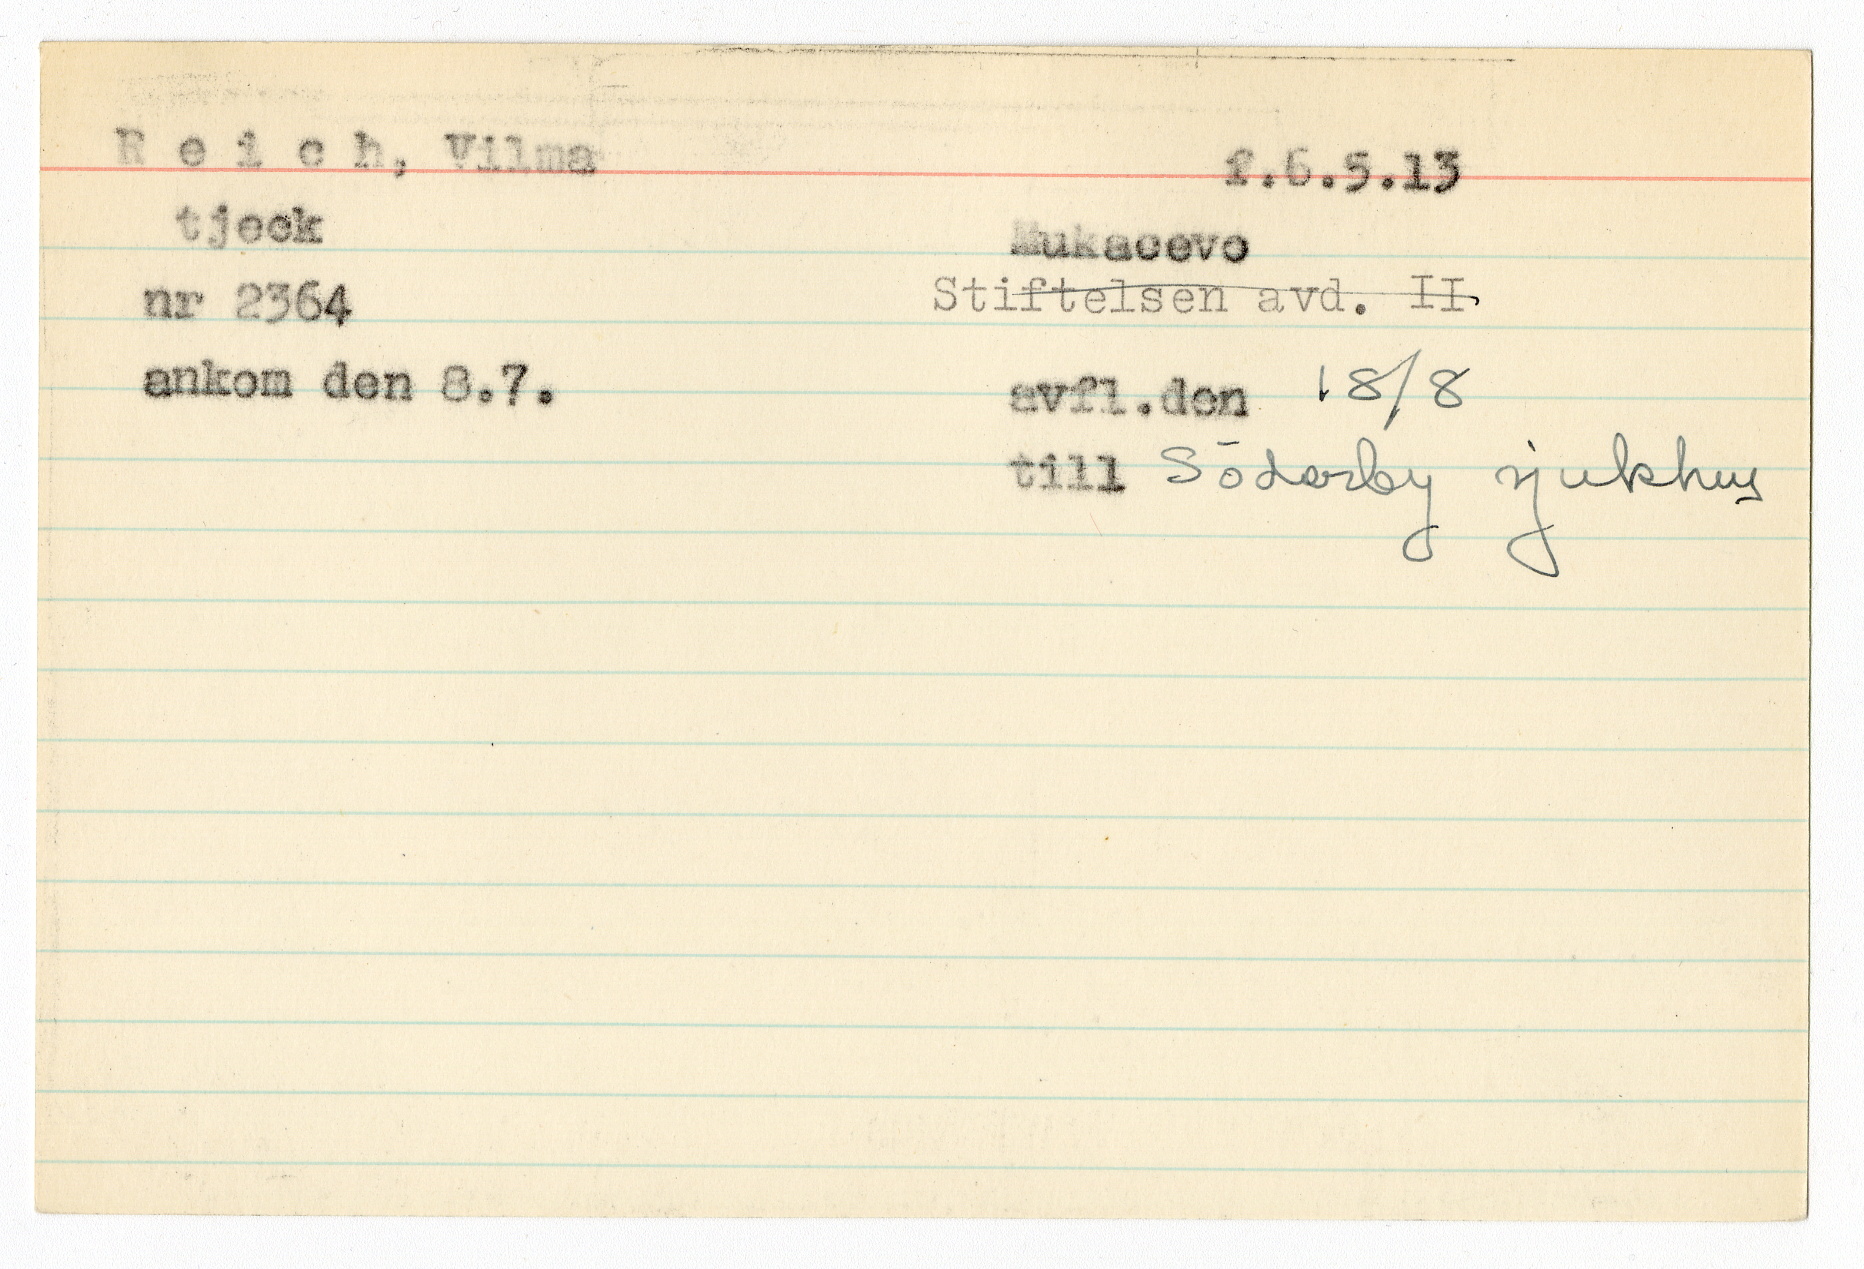 R e i c h, Vilma
f.6.5.13
tjeck
Mukacevo
nr 2364
Stiftelsen avd. II.
ankom den 8.7.
avfl.den 18/8
till Söderby sjukhus